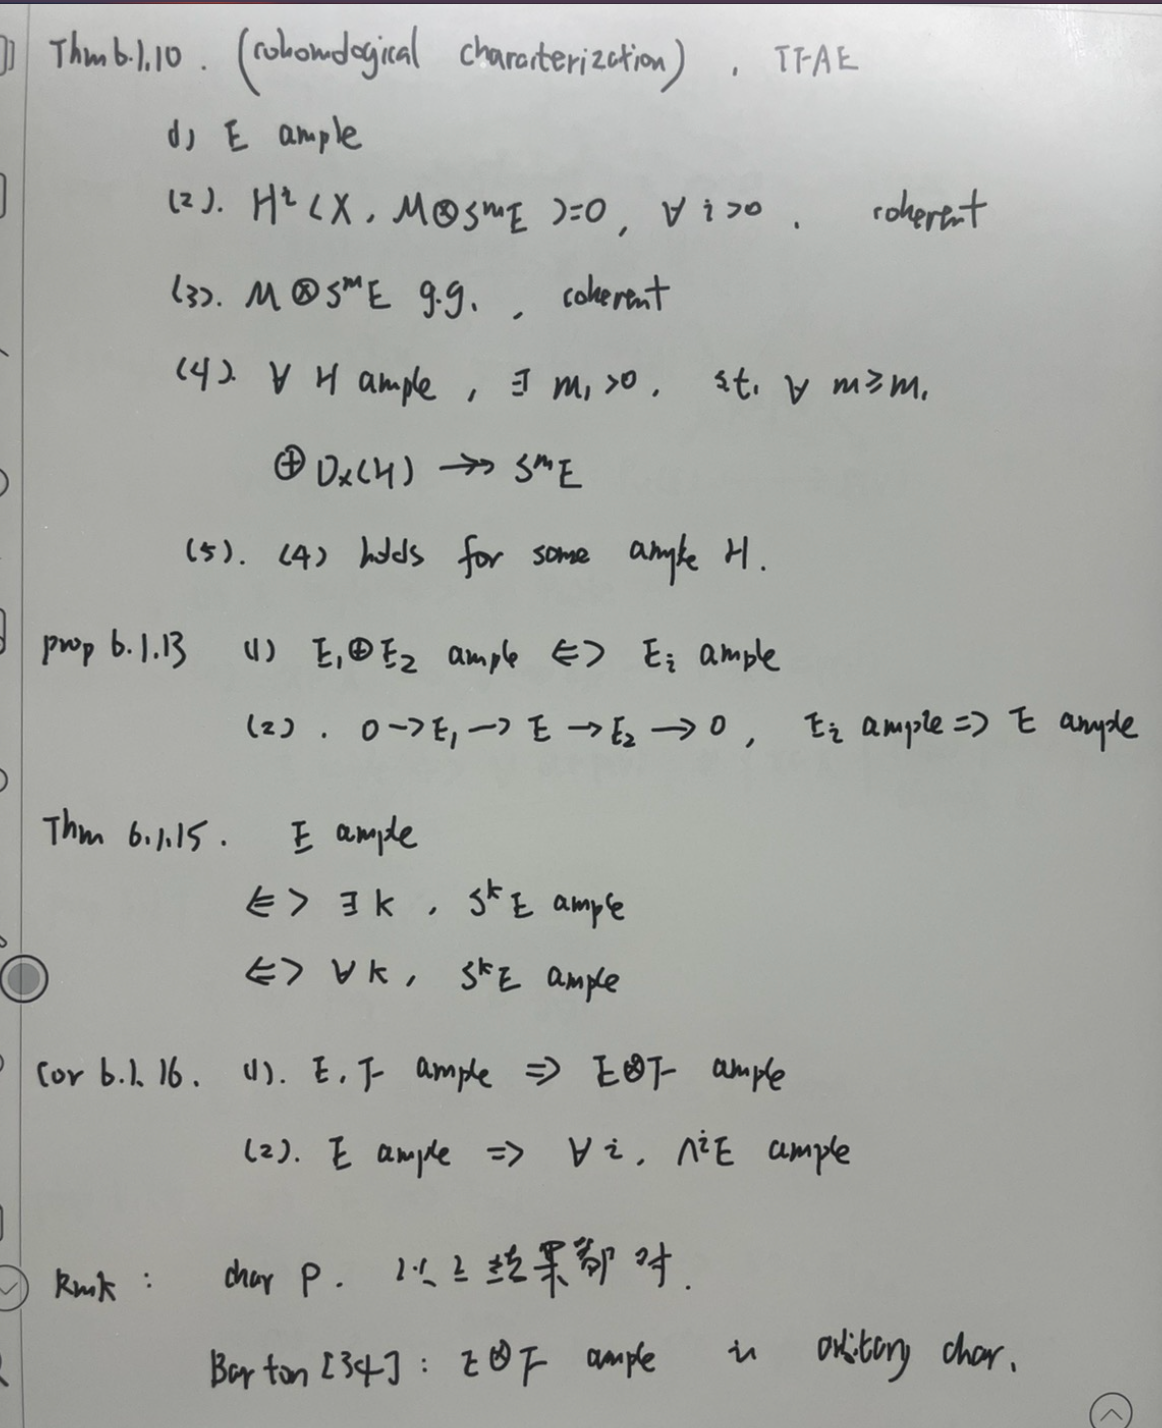 Thm 6.1.10. (cohomological characterization), TFAE
(1) E ample
(2). Hⁱ(X, M⊗SᵐE)=0, ∀ i>0. coherent
(3). M⊗SᵐE g.g., coherent
(4). ∀ H ample, ∃ m₁>0. st. ∀ m≥m₁
⊕ Oₓ(H) ↠ SᵐE
(5). (4) holds for some ample H.
prop 6.1.13 (1) E₁⊕E₂ ample <=> Eᵢ ample
(2). 0→E₁→E→E₂→0, Eᵢ ample => E ample
Thm 6.1.15. E ample
<=> ∃ k, SᵏE ample
<=> ∀ k, SᵏE ample
Cor 6.1.16. (1). E, F ample => E⊗F ample
(2). E ample => ∀ i, ∧ⁱE ample
Rmk: char p. 以上结果都对.
Barton [34]: E⊗F ample in arbitary char.